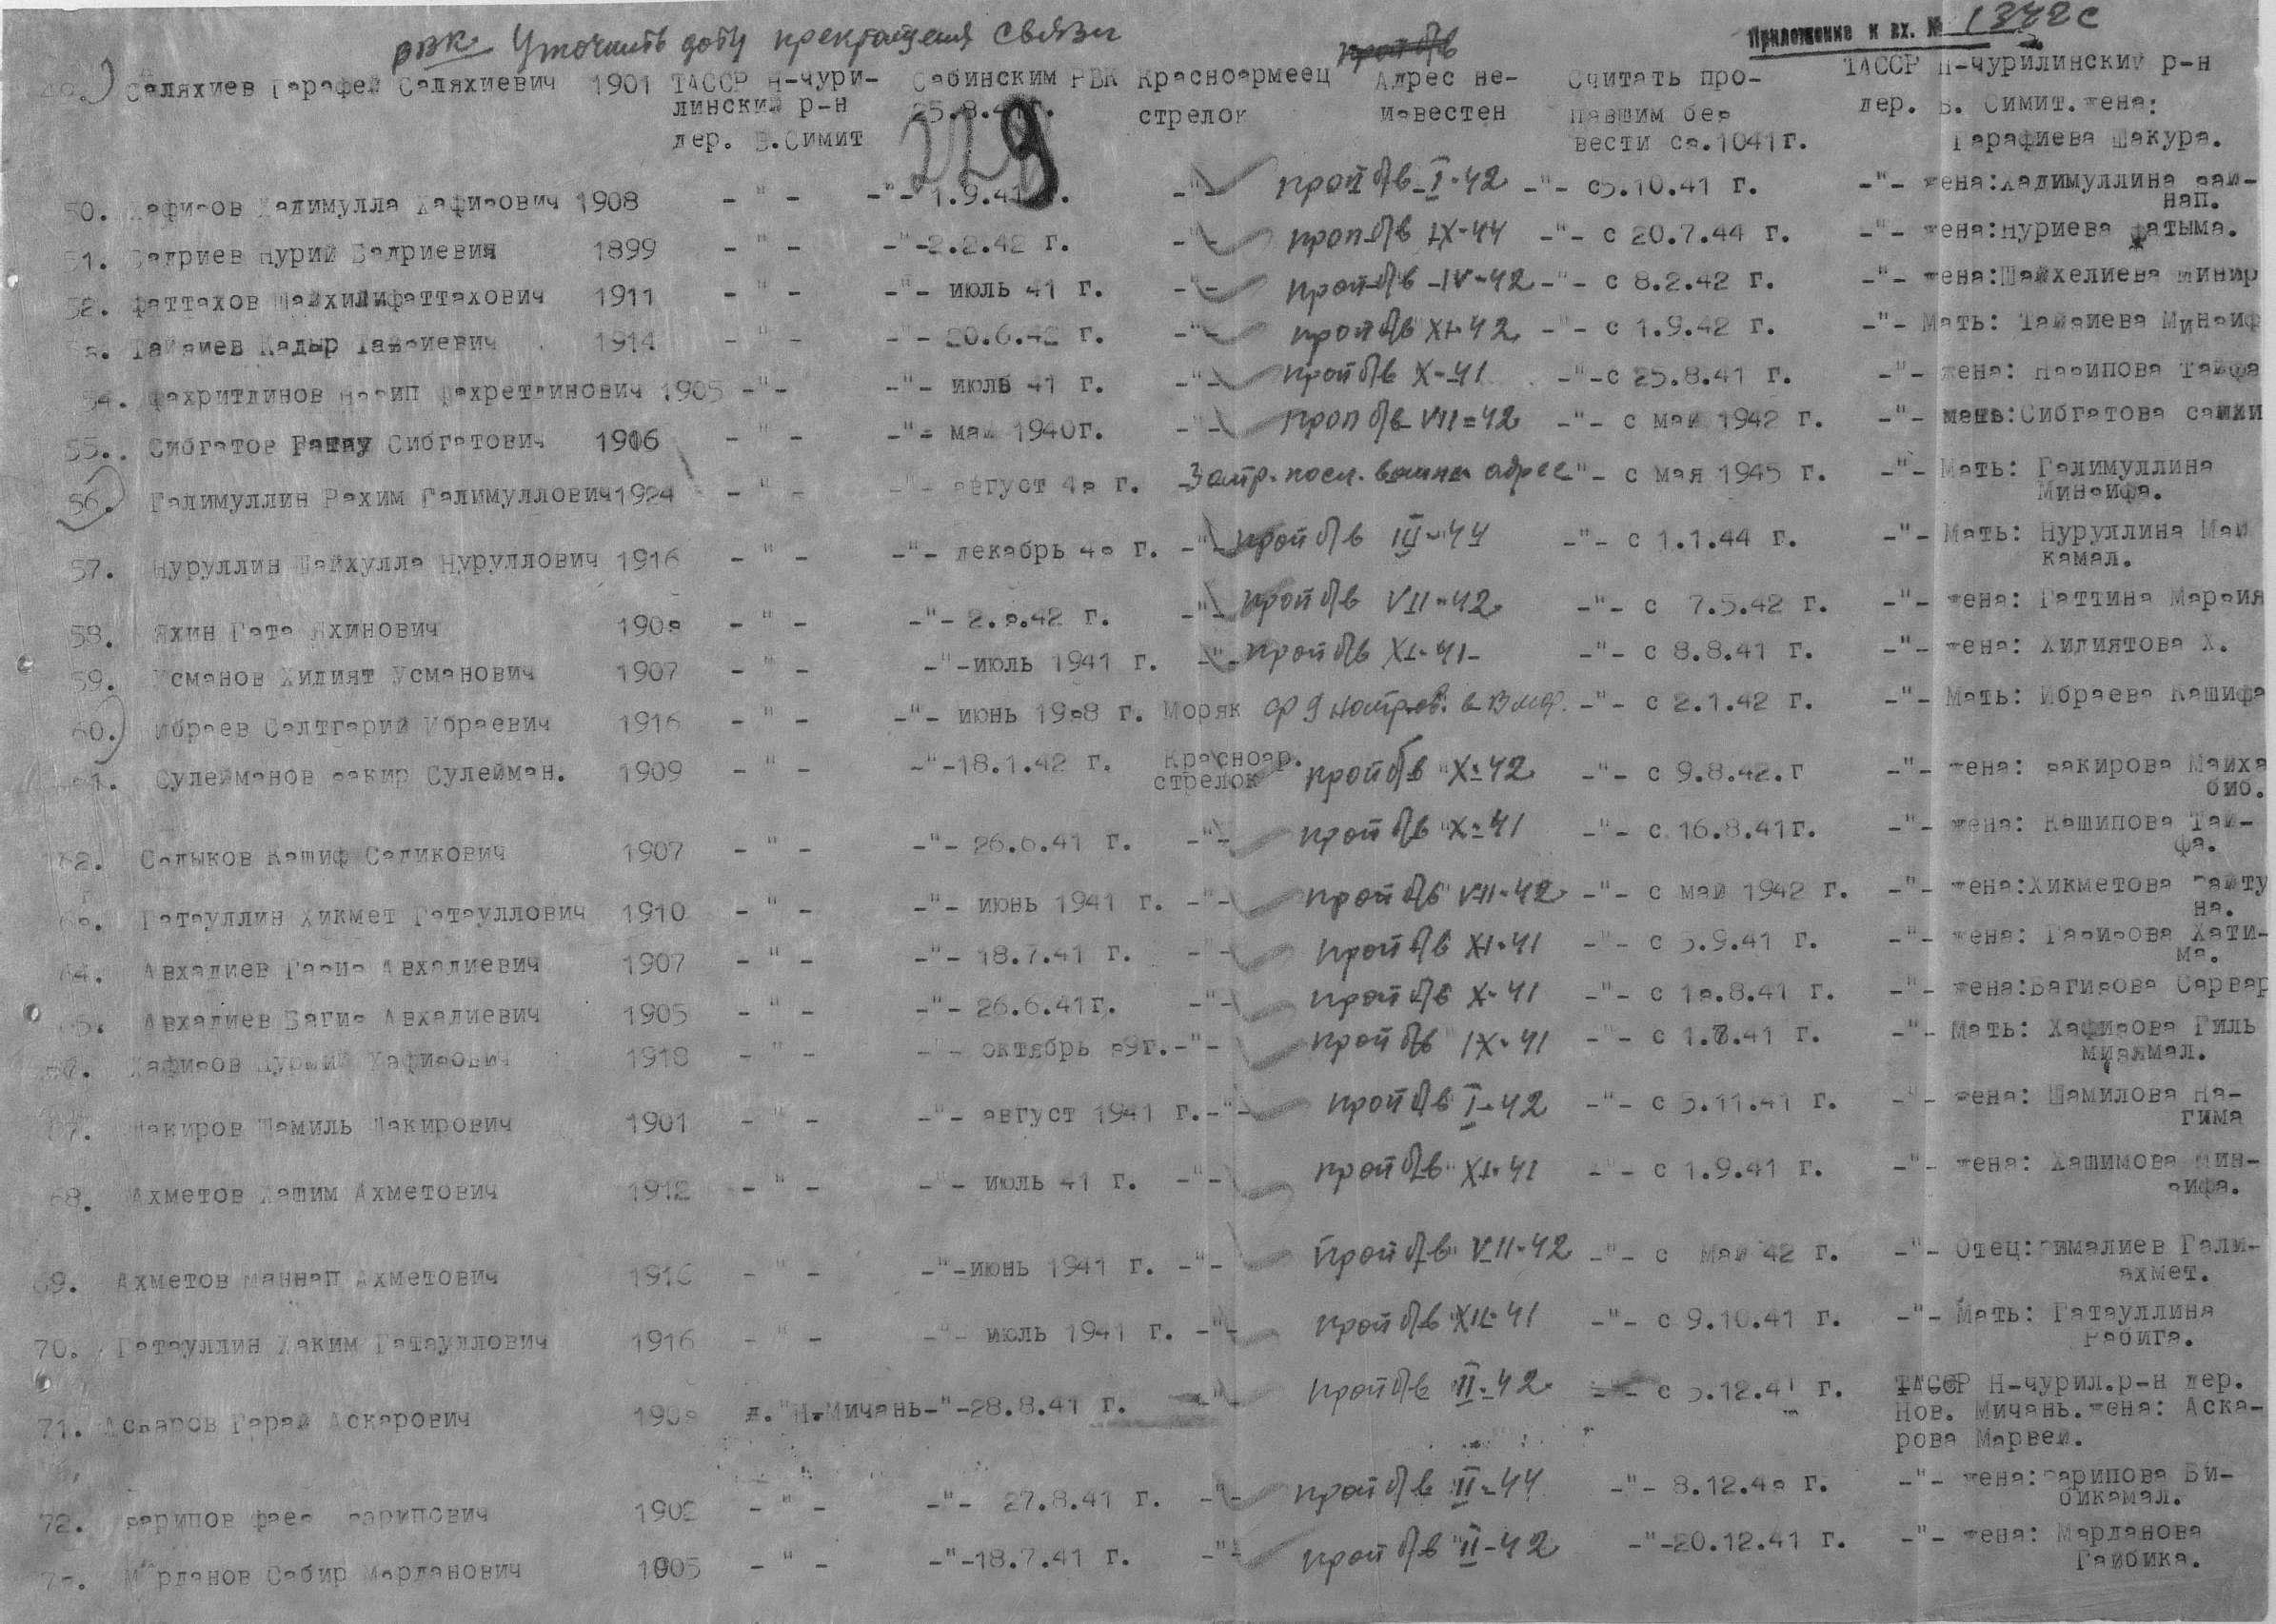 РВК Уточнить дату прекращения связи
Приложение к вх. № 1342с
Саляхиев Гарафей Саляхиевич 1901 ТАССР Н-чури- Сабинским РВК Красноармеец Адрес не- Считать про- ТАССР Н-чурилинский р-н
линский р-н 25.8.41г. стрелок известен павшим без дер. В. Симит.жена:
дер. В.Симит вести с 1041г. Гарафиева Шакура.
229
50. Хафизов Хадимулла Хафизович 1908 - " - -"- 1.9.41 г. -"- проп б/в I-42 -"- с5.10.41 г. -"- жена:Хадимуллина зай-
нап.
51. Бадриев Нурий Бадриевич 1899 - " - -"-2.2.42 г. -"- проп б/в IX-44 -"- с 20.7.44 г. -"- жена:Нуриева Фатыма.
52. Фаттахов Шайхилифаттахович 1911 - " - -"- июль 41 г. -"- проп б/в -IV-42 -"- с 8.2.42 г. -"- жена:Шайхелиева Минир
Кадыр 1914 - " - -"- 20.6.42 г. -"- проп б/в XI-42 -"- с 1.9.42 г. -"- Мать:
54. Фахритдинов Фахретдинович 1905 -"- -"- июль 41 г. -"- проп б/в X-41 -"-с 25.8.41 г. -"- жена:
55. Сибгатов Сибгатович 1906 - " - -"- май 1940г. -"- проп б/в VII-42 -"- с май 1942 г. -"- Сибгатова
56. Галимуллин Рахим Галимуллович1924 - " - -"- август 4з г. Затр. посл. воинск адрес -"- с мая 1945 г. -"- Мать: Галимуллина
Минзифа.
57. Нуруллин Шайхулла Нуруллович 1916 - " - -"- декабрь 4з г. -"- проп б/в III-44 -"- с 1.1.44 г. -"- Мать: Нуруллина Май
камал.
58. Яхин Гата Яхинович 190з - " - -"- 2.з.42 г. -"- проп б/в VII-42 -"- с 7.5.42 г. -"- жена: Гаттина Марзия
59. Усманов Хидият Усманович 1907 - " - -"-июль 1941 г. -"- проп б/в XI-41 -"- с 8.8.41 г. -"- жена: Хидиятова Х.
60. Ибраев Салтгарий Ибраевич 1916 - " - -"- июнь 19з8 г. Моряк -"- с 2.1.42 г. -"- Мать: Ибраева Кашифа
61. Сулейманов закир Сулейман. 1909 - " - -"-18.1.42 г. Красноар. проп б/в X-42 -"- с 9.8.42.г -"- жена: закирова Майха
стрелок биб.
62. Садыков Кашиф Садикович 1907 - " - -"- 26.6.41 г. -"- проп б/в X-41 -"- с 16.8.41г. -"- жена: Кашипова Тай-
фа.
6з. Гатауллин Хикмет Гатауллович 1910 - " - -"- июнь 1941 г. -"- проп б/в VII-42 -"- с май 1942 г. -"- жена:Хикметова
на.
64. Авхадиев Газиз Авхадиевич 1907 - " - -"- 18.7.41 г. -"- проп б/в XI-41 -"- с 5.9.41 г. -"- жена: Газизова Хати-
ма.
65. Авхадиев Багиз Авхадиевич 1905 - " - -"- 26.6.41г. -"- проп б/в X-41 -"- с 1з.8.41 г. -"- жена:Багизова Сарвар
Хафизов Хафизович 1918 - " - -"- октябрь з9г.-"- проп б/в IX-41 -"- с 1.7.41 г. -"- Мать: Хафизова Гиль
67. Шакиров Шамиль Шакирович 1901 - " - -"- август 1941 г.-"- проп б/в I-42 -"- с 5.11.41 г. -"- жена: Шамилова На-
гима
68. Ахметов Хашим Ахметович 1912 - " - -"- июль 41 г. -"- проп б/в XI-41 -"- с 1.9.41 г. -"- жена: Хашимова Мин-
зифа.
69. Ахметов Маннап Ахметович 1916 - " - -"-июнь 1941 г. -"- проп б/в VII-42 -"- с май 42 г. -"- Отец: Гали-
ахмет.
70. Гатауллин Хаким Гатауллович 1916 - " - -"- июль 1941 г. -"- проп б/в XII-41 -"- с 9.10.41 г. -"- Мать: Гатауллина
Рабига.
71. Аскаров Гарай Аскарович 190з д. Н-Мичань-"-28.8.41 г. -"- проп б/в II-42 -"- с 5.12.41 г. ТАССР Н-чурил.р-н дер.
Нов. Мичань.жена: Аска-
рова Марвей.
72. зарипов Фаез зарипович 1902 - " - -"- 27.8.41 г. -"- проп б/в II-44 -"- 8.12.4з г. -"- жена:зарипова Би-
бикамал.
7з. Марданов Сабир Марданович 1905 - " - -"-18.7.41 г. -"- проп б/в II-42 -"-20.12.41 г. -"- жена: Марданова
Гайбика.